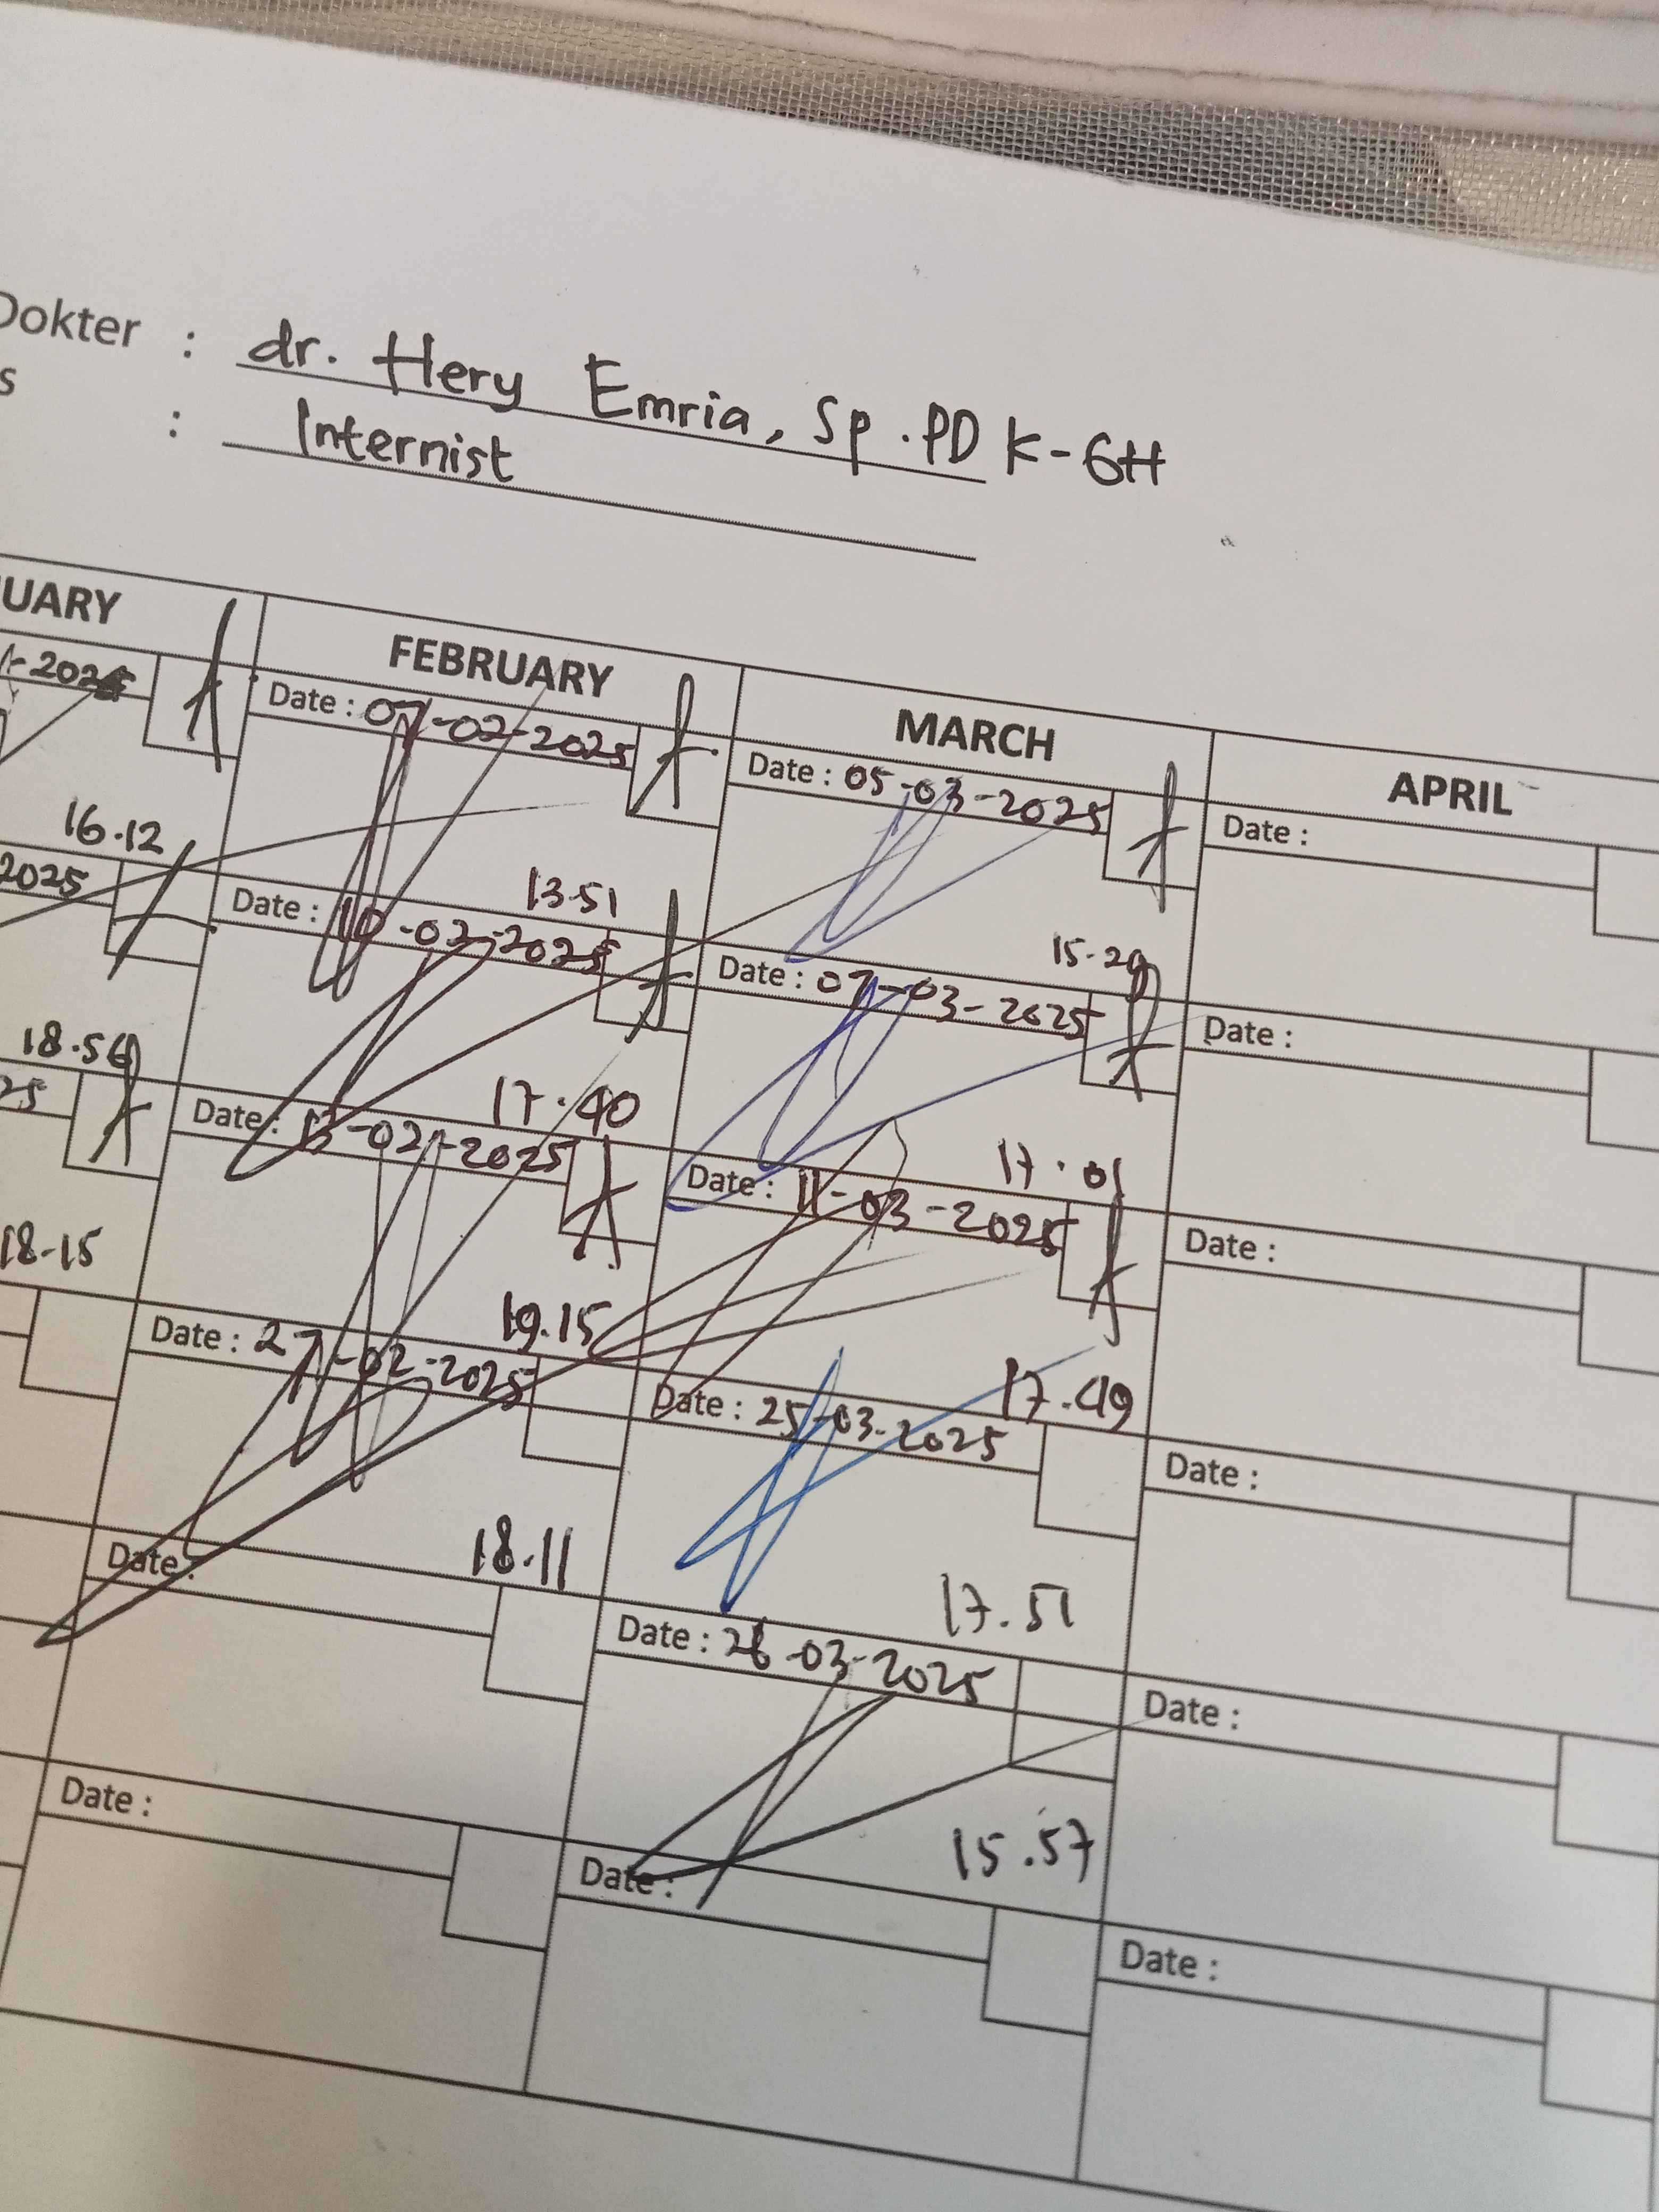 Dokter : dr. Hery Emria, Sp.PD K-GH
s : Internist
UARY FEBRUARY MARCH APRIL
1-2025 Date : 07-02-2025 Date : 05-03-2025 Date :
16.12 13.51 15.29
2025 Date : 10-02-2025 Date : 07-03-2025 Date :
18.56 17.40 17.01
25 Date : 13-02-2025 Date : 11-03-2025 Date :
18-15 19.15 17.49
Date : 27-02-2025 Date : 25-03-2025 Date :
18.11 17.51
Date : Date : 26-03-2025 Date :
15.57
Date : Date : Date :